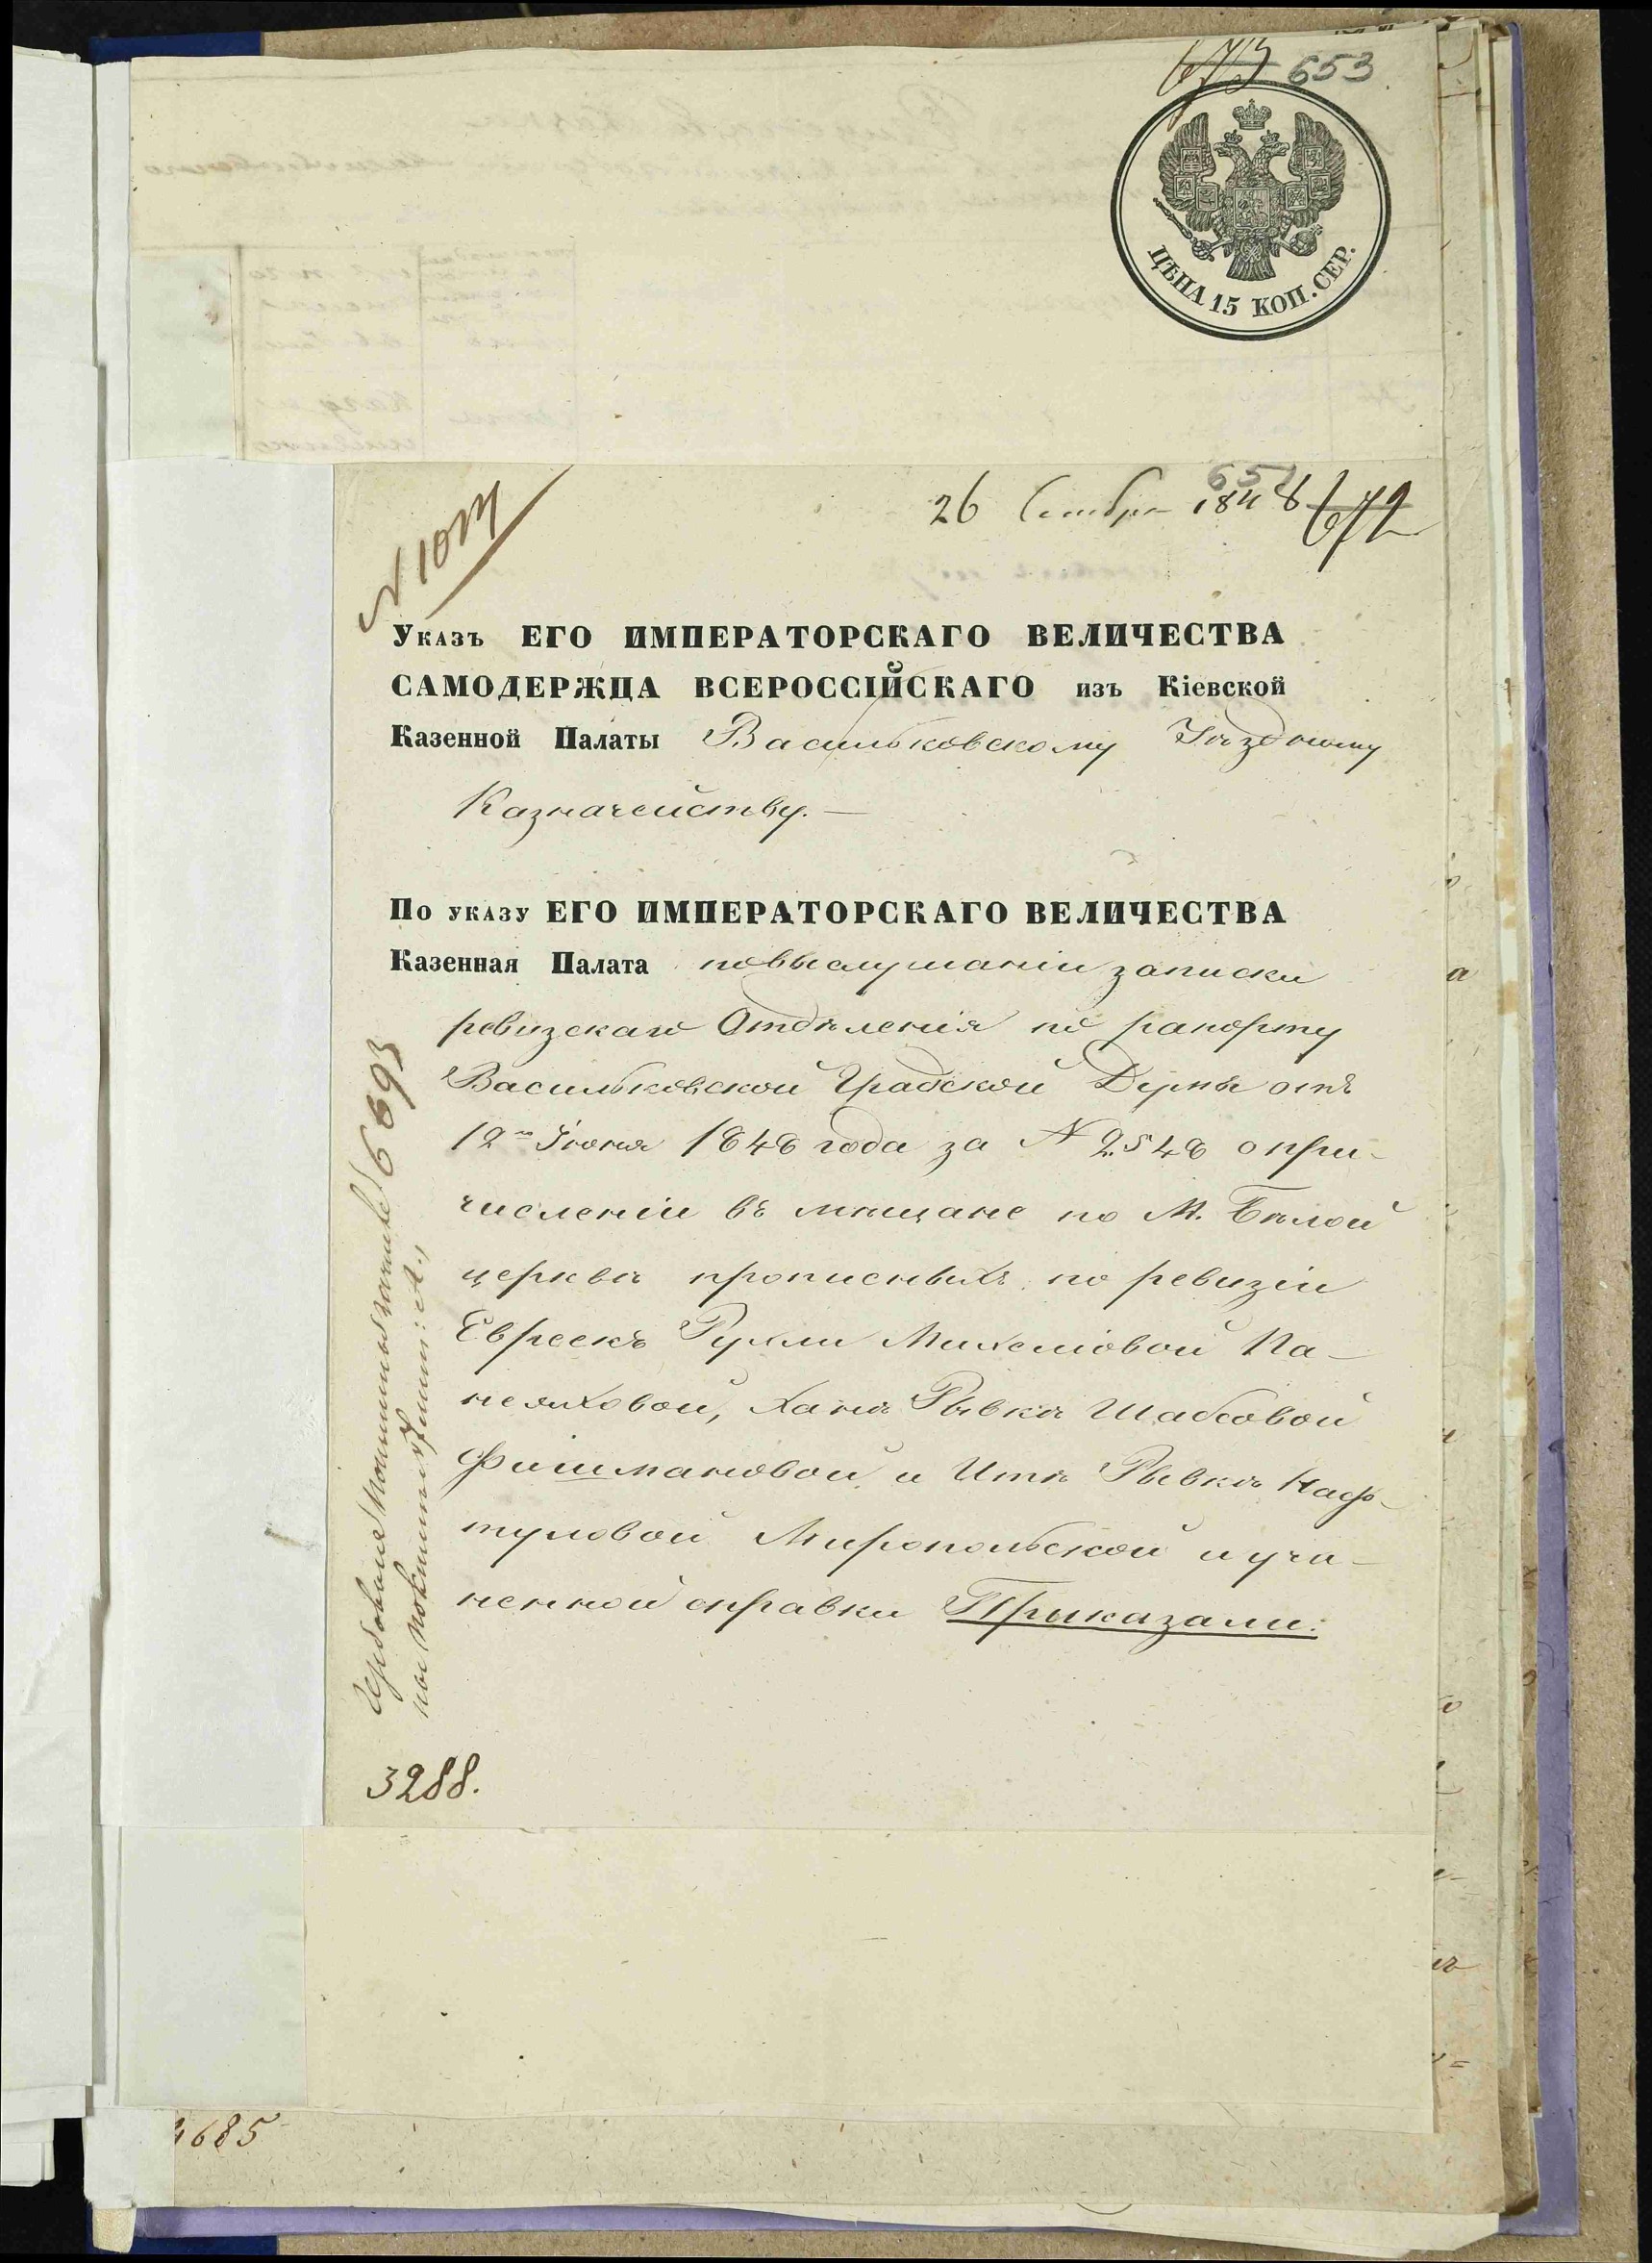 673 653
ЦѢНА 15 КОП. СЕР.
652
26 Сентября 1848 672
N 1017
Указъ ЕГО ИМПЕРАТОРСКАГО ВЕЛИЧЕСТВА
САМОДЕРЖЦА ВСЕРОССІЙСКАГО изъ Кіевской
Казенной Палаты Васильковскому Уѣздному
Казначейству.—
По указу ЕГО ИМПЕРАТОРСКАГО ВЕЛИЧЕСТВА
Казенная Палата по выслушаніи записки
ревизскаго Отдѣленія по рапорту
Васильковской Градской Думы отъ
12го Іюня 1848 года за N 2548 о при-
численіи въ мѣщане по М. Бѣлой
церквѣ прописныхъ по ревизіи
Евреекъ Рухли Михелiовой Па-
неяховой, Ханѣ Рывкѣ Шабсовой
Фишмановой и Итѣ Рывкѣ Наф-
туловой Миропольской и учи-
ненной справки Приказали:
6693
3288.
4685